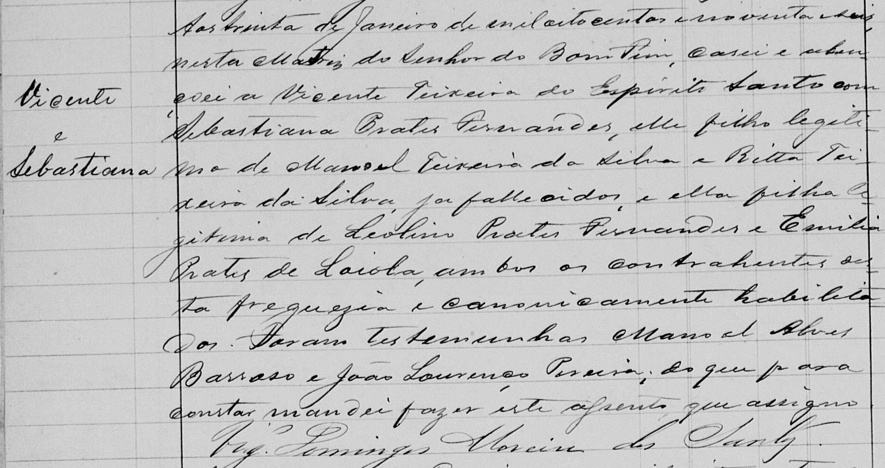 Aos trinta de Janeiro de mil oitocentos e noventa e seis,
nesta Matriz do Senhor do Bom Fim, casei e aben-
Vicente
çoei a Vicente Teixeira do Espirito Santo com
e
Sebastiana Prates Fernandes, elle filho legiti-
Sebastiana
mo de Manoel Teixeira da Silva e Ritta Tei-
xeira da Silva, ja fallecidos, e ella filha le-
gitima de Leolino Prates Fernandes e Emilia
Prates de Loiola, ambos os contrahentes des-
ta freguezia e canonicamente habilita-
dos. Foram testemunhas Manoel Alves
Barroso e João Lourenço Pereira; do que para
constar mandei fazer este assento, que assigno.
Vigº Domingos Moreira dos Santos.